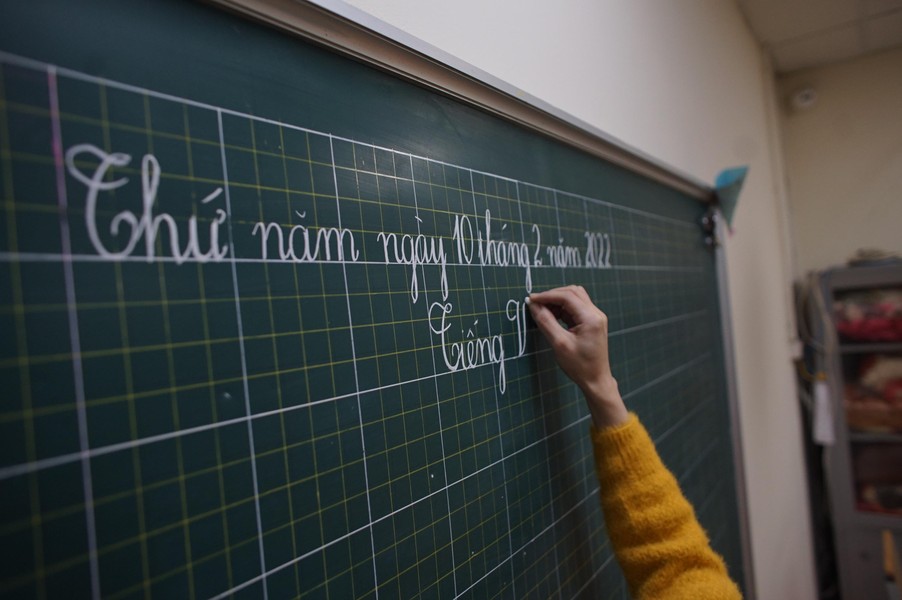 Thứ năm ngày 10 tháng 2 năm 2022
Tiếng V